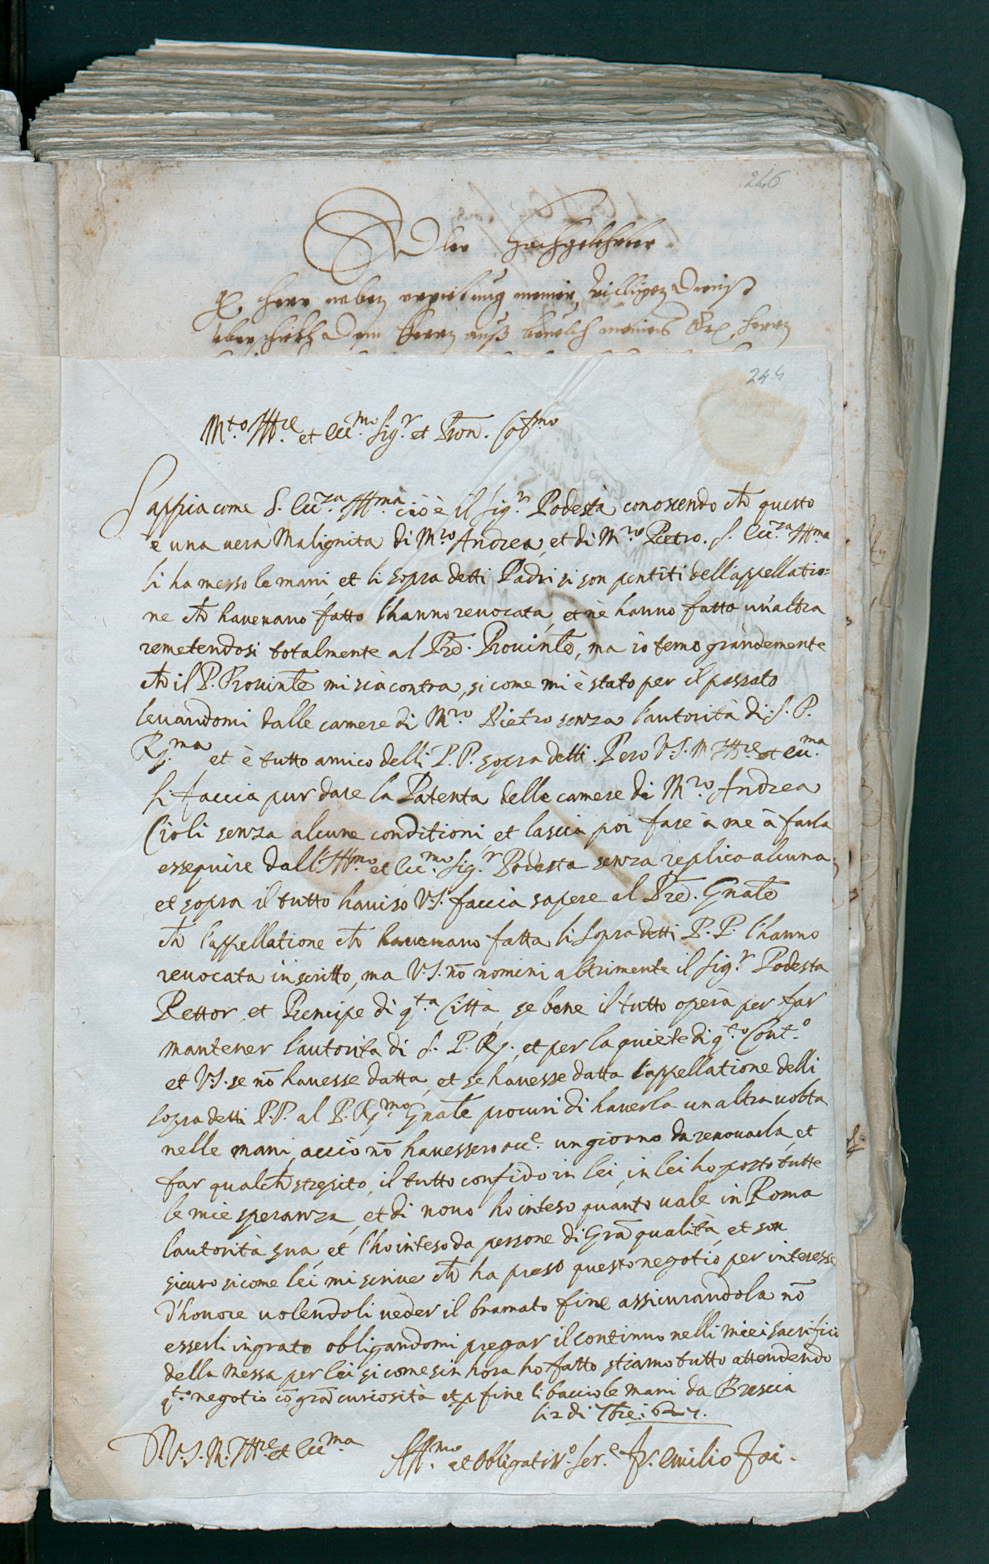 246
Edler Hochgelehrter
Herr neben meiner willigen Dienst
Herrn auß meines Herrn
244
M.to Ill.re et Ecc.mo Sig.r et Pron. Col.mo
Sappia come S. Ecc.za Ill.ma cioè il Sig.r Podestà conoscendo ch questo
è una vera Malignita di M.ro Andrea, et di M.ro Pietro. S. Ecc.za Ill.ma
li ha messo le mani, et li sopra detti Padri si son pentiti dell'appellatio-
ne ch havevano fatto l'hanno revocata, et nè hanno fatto un'altra
remetendosi totalmente al Prē. Provinle, ma io temo grandemente
ch il P. Provinle mi sia contra, si come mi è stato per il passato
levandomi dalle camere di M.ro Pietro senza l'autorità di S. P.
R.ma et è tutto amico delli P.P. sopra detti. Pero V.S. M. Ill.re et ecc.ma
si faccia pur dare la Patenta delle camere di M.ro Andrea
Cioli senza alcune conditioni, et lascia poi fare à me à farla
essequire dall'Ill.mo et Ecc.mo Sig.r Podesta senza replica alcuna
et sopra il tutto haviso V.S. faccia sapere al Prē. Gnale
ch l'appellatione ch havevano fatta li sopra detti P.P. l'hanno
revocata in scritto, ma V.S. nō nomini altrimente il Sig.r Podesta
Rettor, et Prencipe di q.ta Città, se bene il tutto opera per far
mantener l'autorità di S. P. R., et per la quiete di q.to Conto
et V.S. se nō havesse datta, et se havesse datta l'appellatione delli
sopra detti P.P. al P. R.mo Gnale procuri di haverla un altra volta
nelle mani, acciò nō havessero un giorno da renovarla, et
far qualch strepito, il tutto confido in lei, in lei ho posto tutte
le mie speranza, et di novo ho inteso quanto vale in Roma
l'autorità sua, et l'ho inteso da persone di Grā qualità, et son
sicuro sicome lei mi scrive ch ha preso questo negotio per interesse
d'honore volendoli veder il bramato fine assicurandola nō
esserli ingrato obligandomi pregar il continuo nelli miei sacrifici
della Messa per lei si come sin hora ho fatto, stiamo tutto attendendo
q.to negotio cō grā curiosità et p fine li baccio le mani da Brescia
li 2 di 7bre 1627.
D. V. S. M. Ill.re et Ecc.ma
Aff.mo et obligatiss.o Ser.e Fr. Emilio